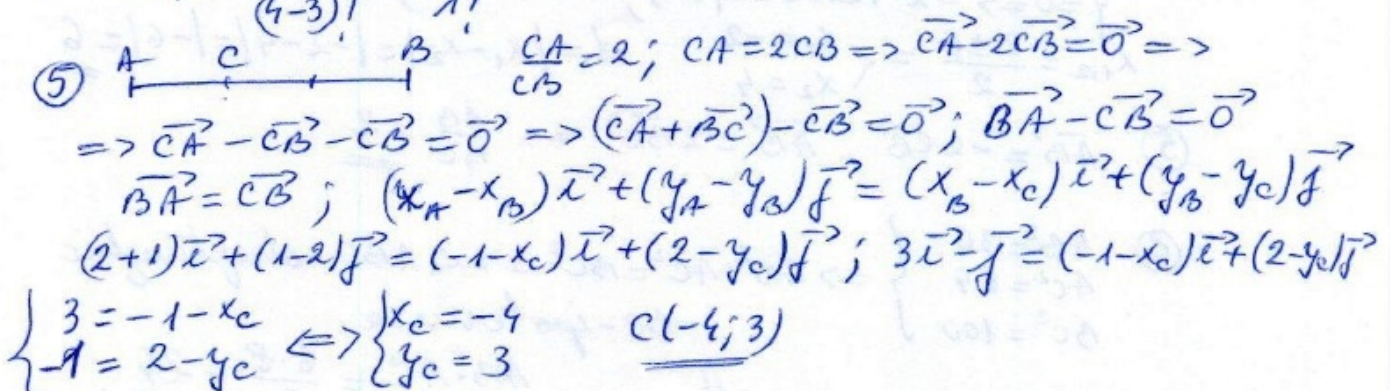 (4-3)! 1!
⑤ A C B CA/CB = 2; CA = 2CB => \overrightarrow{CA} - 2\overrightarrow{CB} = \overrightarrow{0} =>
=> \overrightarrow{CA} - \overrightarrow{CB} - \overrightarrow{CB} = \overrightarrow{0} => (\overrightarrow{CA} + \overrightarrow{BC}) - \overrightarrow{CB} = \overrightarrow{0}; \overrightarrow{BA} - \overrightarrow{CB} = \overrightarrow{0}
\overrightarrow{BA} = \overrightarrow{CB}; (x_A - x_B)\vec{i} + (y_A - y_B)\vec{j} = (x_B - x_C)\vec{i} + (y_B - y_C)\vec{j}
(2+1)\vec{i} + (1-2)\vec{j} = (-1-x_C)\vec{i} + (2-y_C)\vec{j}; 3\vec{i} - \vec{j} = (-1-x_C)\vec{i} + (2-y_C)\vec{j}
{ 3 = -1 - x_C <=> { x_C = -4 C(-4; 3)
-1 = 2 - y_C y_C = 3